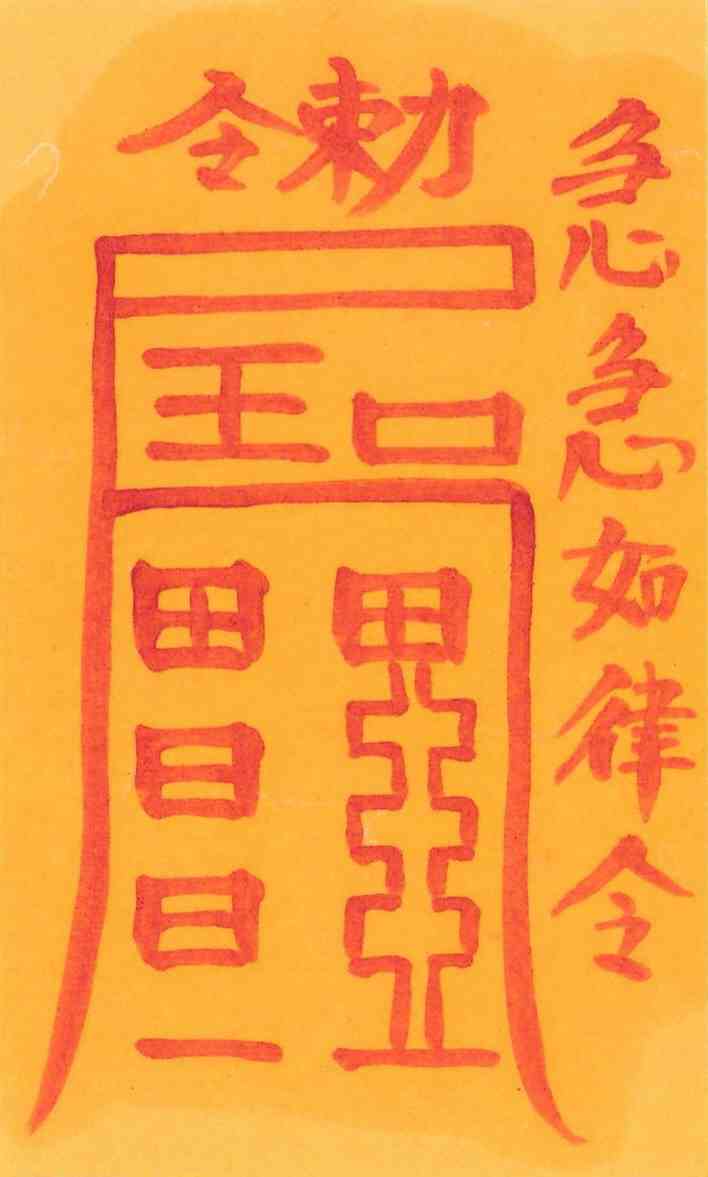 勅令
急急如律令
口王
甲
田日日一